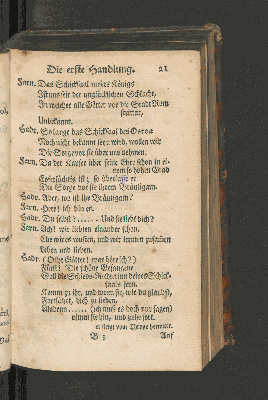 Die erste Handlung. 21
Farn. Das Schicksal unsers Königs
Ist uns seit der unglücklichen Schlacht,
In welcher alle Götter vor die Stadt Rom
Unbekannt.
Hadr. So lange das Schicksal des Osroa
Noch nicht bekannt seyn wird, wollen wir
Die Sorge vor sie über uns nehmen.
Farn. Da der Kayser über seine Ehre schon in ei-
nem so hohen Grad
Eyfersüchtig ist; so überlasse er
Die Sorge vor sie ihrem Bräutigam.
Hadr. Aber, wo ist ihr Bräutigam?
Farn. Herr! ich bin es.
Hadr. Du selbst? ...... Und sie liebt dich?
Farn. Ach! wir liebten einander schon,
Ehe wir es wusten, und wir lernten zusammen
Leben und lieben.
Hadr. (O ihr Götter! was höre ich?)
Die schöne Gefangene
Soll die Schieds-Richterin deines Schick-
sals seyn.
Komm zu ihr, und wenn sie, wie du glaubst,
Fortfährt, dich zu lieben,
Alsdenn ...... (ich muß es doch nur sagen)
nimm sie hin, und gehe fort.
er steigt vom Throne herunter.
B 3 Auf